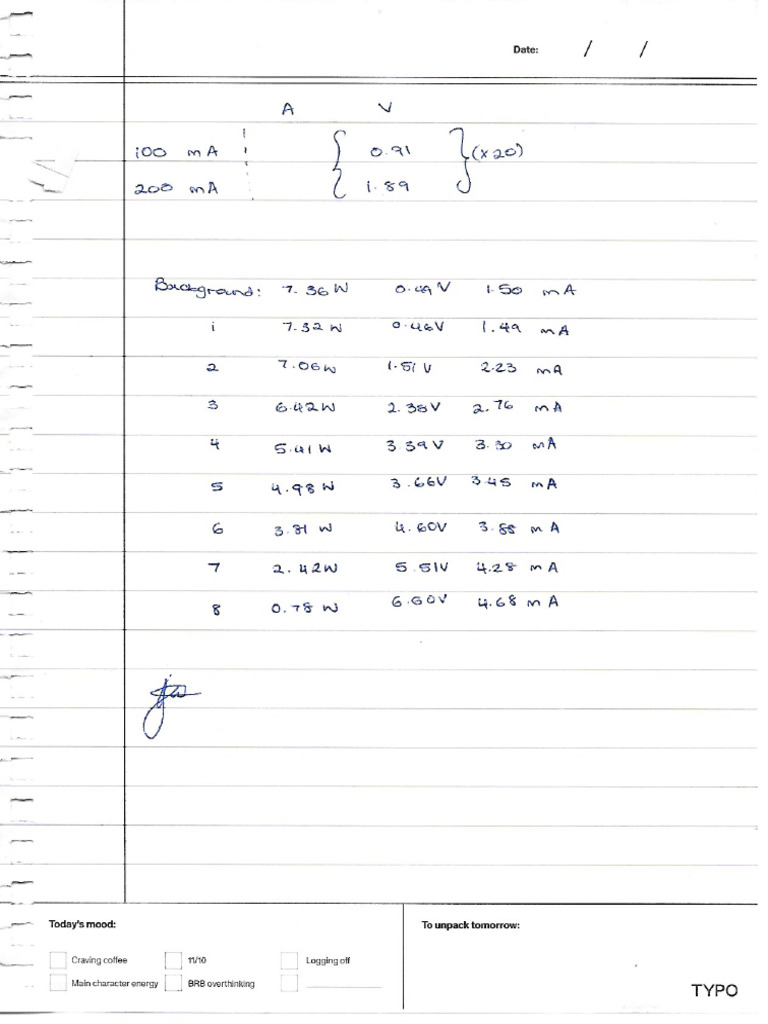 Date: / /
A V
100 mA 0.91 (x20)
200 mA 1.89
Background: 7.36 W 0.49 V 1.50 mA
1 7.32 W 0.46V 1.49 mA
2 7.06W 1.51 V 2.23 mA
3 6.42W 2.38V 2.76 mA
4 5.41 W 3.39 V 3.30 mA
5 4.98 W 3.66V 3.45 mA
6 3.81 W 4.60V 3.88 mA
7 2.42W 5.51V 4.28 mA
8 0.78 W 6.60V 4.68 mA
Today's mood:
To unpack tomorrow:
Craving coffee 11/10 Logging off
Main character energy BRB overthinking
TYPO